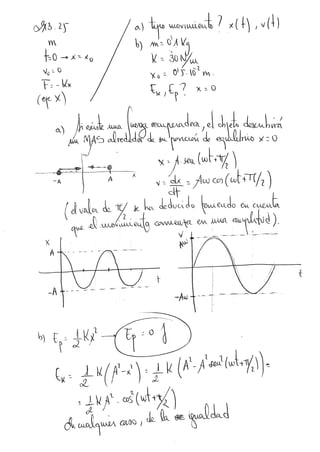 a) tipo movimiento? x(t), v(t)
m
t=0 → x=x₀
v₀=0
F=-Kx
(eje X)
b) m=0'1 Kg
K = 30 N/m
x₀ = 0'5·10⁻² m.
Ek, Ep? x=0
a) Al existir una fuerza recuperadora, el objeto describirá
un MAS alrededor de su posición de equilibrio x=0
x = A sen(ωt+π/2)
v = dx/dt = Aω cos(ωt+π/2)
-A A x
(el valor de π/2 se ha deducido teniendo en cuenta
que el movimiento comienza en una amplitud).
x A -A t
v Aω -Aω t
b) Ep = 1/2 Kx² → Ep = 0 J
Ek = 1/2 K(A²-x²) = 1/2 K(A²-A² sen²(ωt+π/2)) =
= 1/2 K A² · cos²(ωt+π/2)
En cualquier caso, de la igualdad